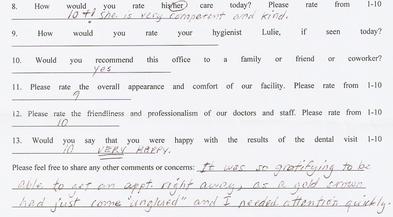 8. How would you rate his/her care today? Please rate from 1-10
10+! She is very competent and kind.
9. How would you rate your hygienist Lulie, if seen today?
10. Would you recommend this office to a family or friend or coworker?
yes
11. Please rate the overall appearance and comfort of our facility. Please rate from 1-10
9
12. Please rate the friendliness and professionalism of our doctors and staff. Please rate from 1-10
10
13. Would you say that you were happy with the results of the dental visit 1-10
10 VERY HAPPY.
Please feel free to share any other comments or concerns: It was so gratifying to be
able to get an appt. right away, as a gold crown
had just come "unglued" and I needed attention quickly.